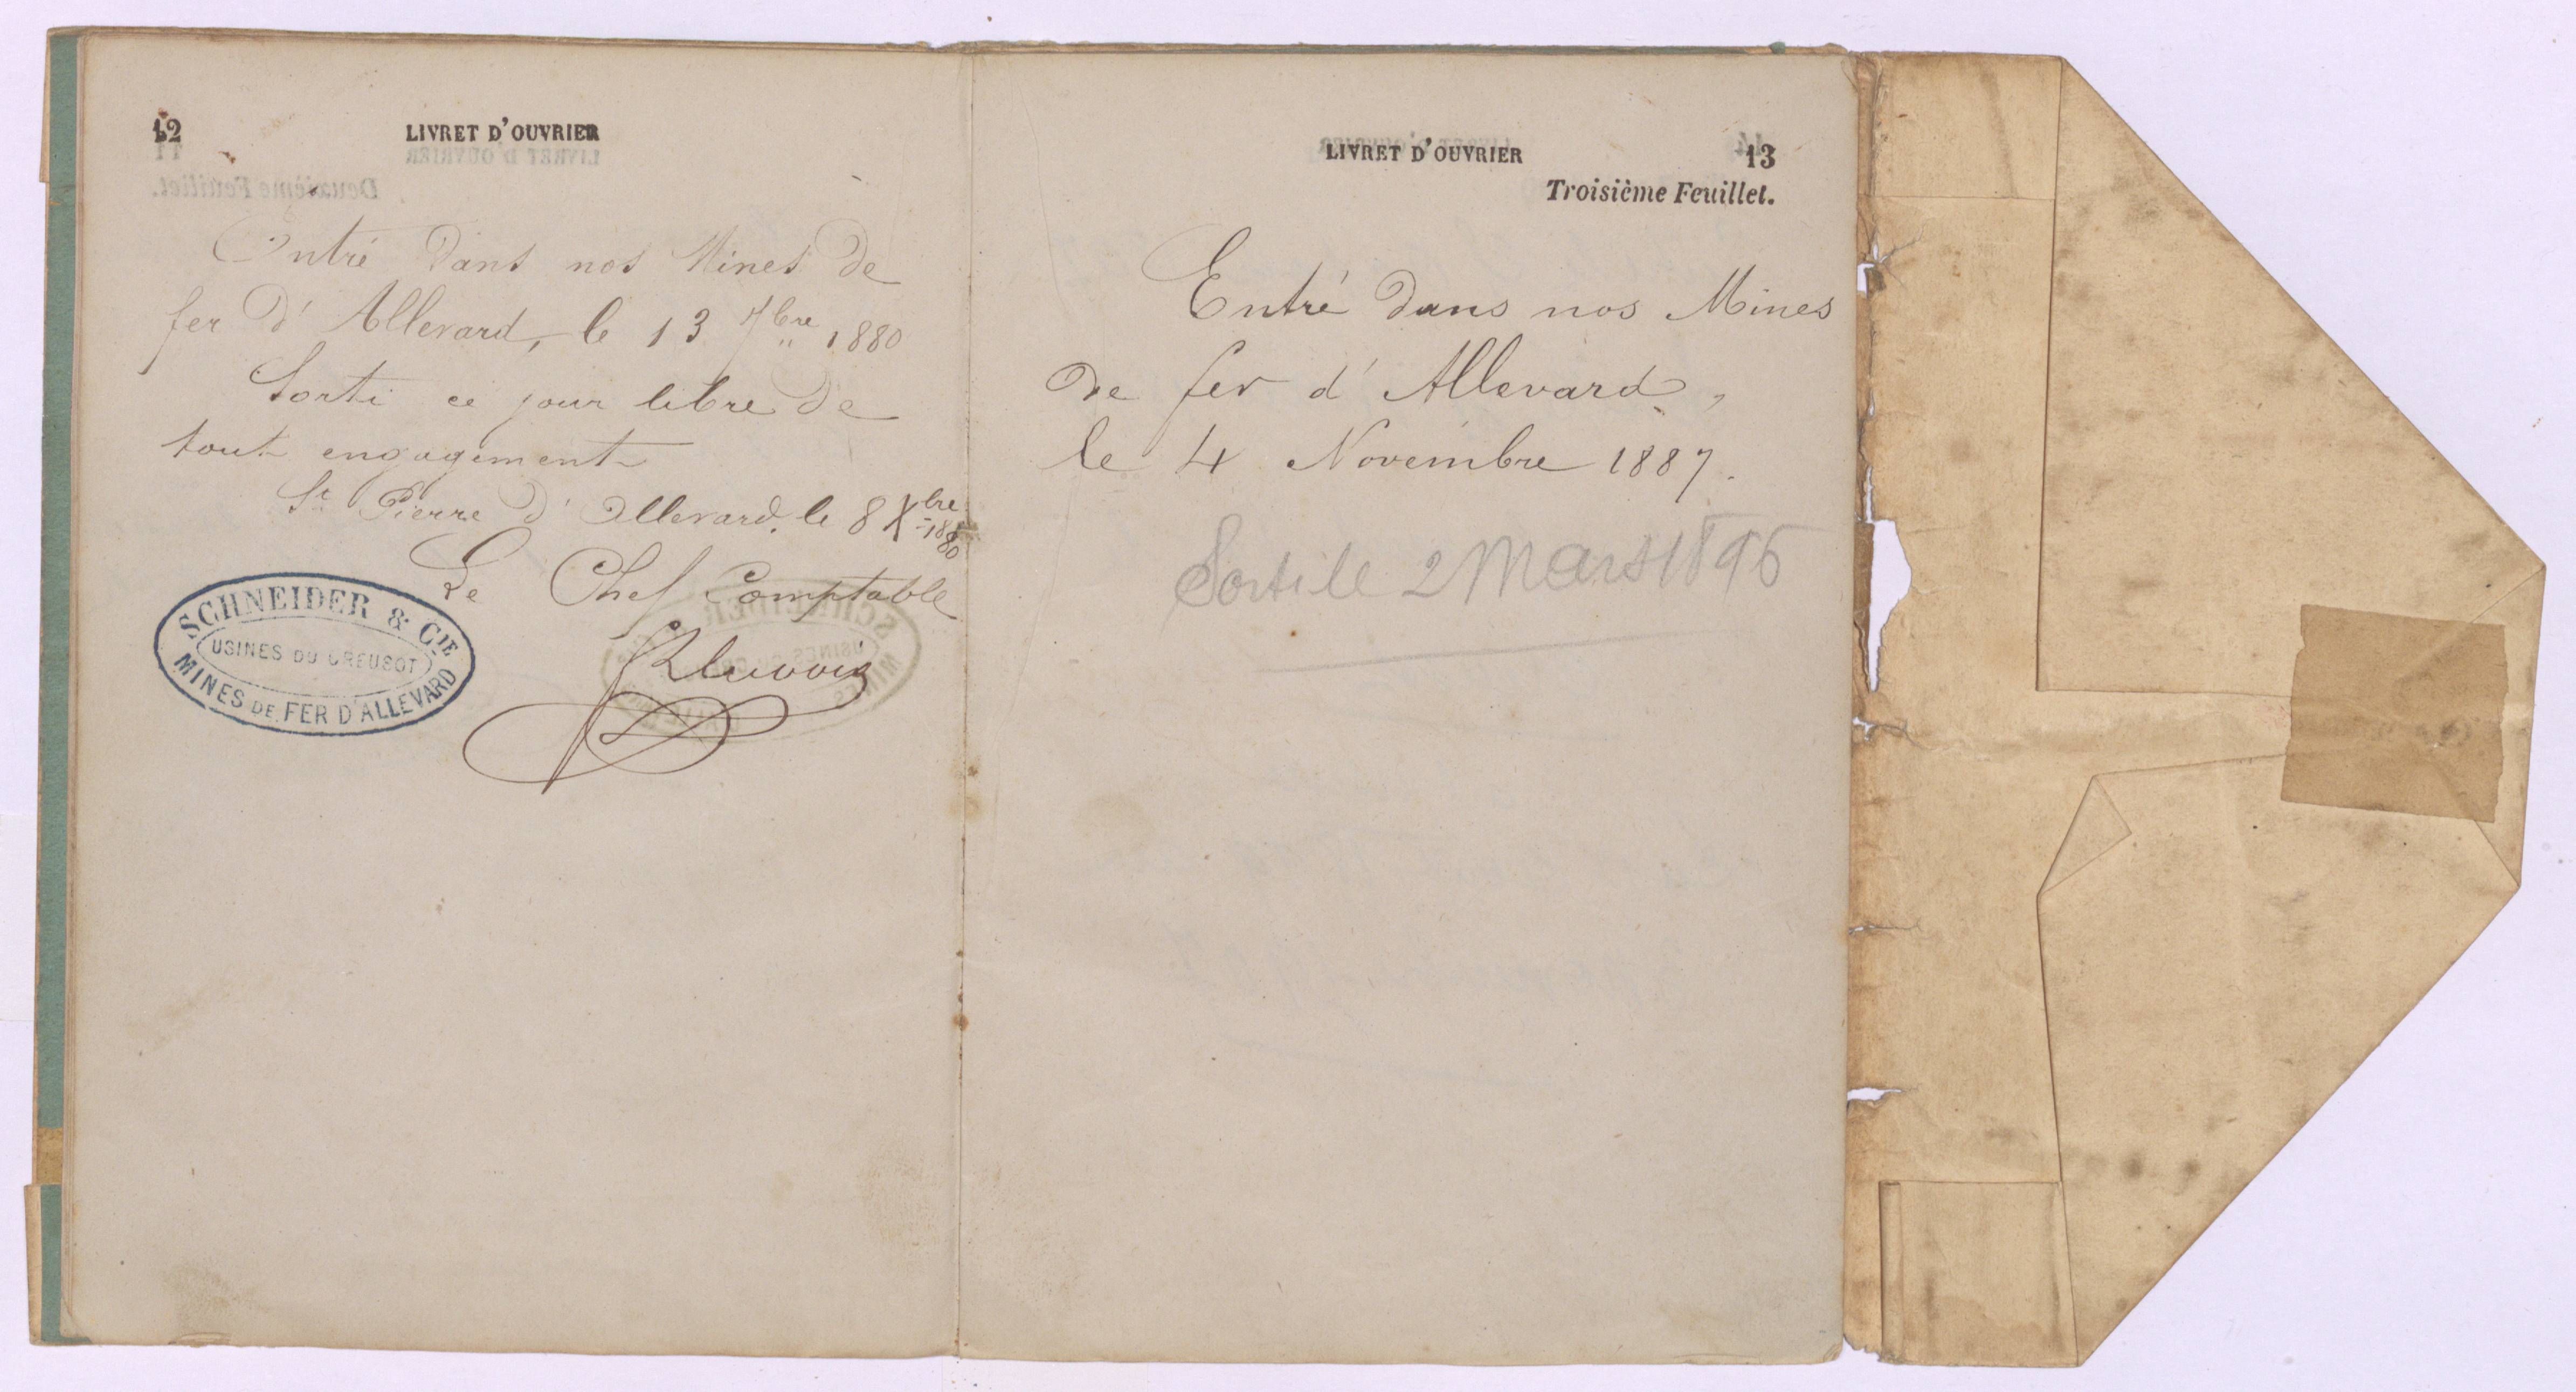 12
LIVRET D'OUVRIER
Entré dans nos Mines de
fer d'Allevard, le 13 7bre 1880
Sorti ce jour libre de
tout engagement
St Pierre d'Allevard, le 8 Xbre 1880
Le Chef Comptable
SCHNEIDER & CIE
USINES DU CREUSOT
MINES DE FER D'ALLEVARD
LIVRET D'OUVRIER
13
Troisième Feuillet.
Entré dans nos Mines
de fer d'Allevard,
le 4 Novembre 1887.
Sorti le 2 Mars 1896